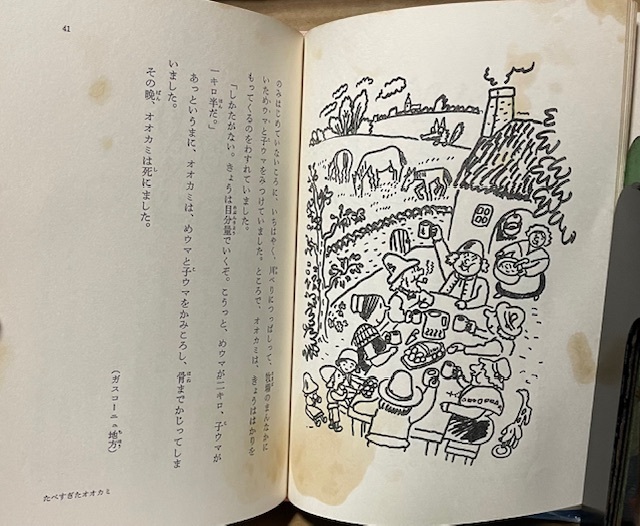 41
のみはじめていないころに、いちはやく、川べりにつっぱしって、牧場のまんなかに
いためウマと子ウマをみつけていました。ところで、オオカミは、きょうははかりを
もってくるのをわすれていました。
「しかたがない。きょうは目分量でいくぞ。こうっと、めウマが二キロ、子ウマが
一キロ半だ。」
あっというまに、オオカミは、めウマと子ウマをかみころし、骨までかじってしま
いました。
その晩、オオカミは死にました。
(ガスコーニュ地方)
たべすぎたオオカミ